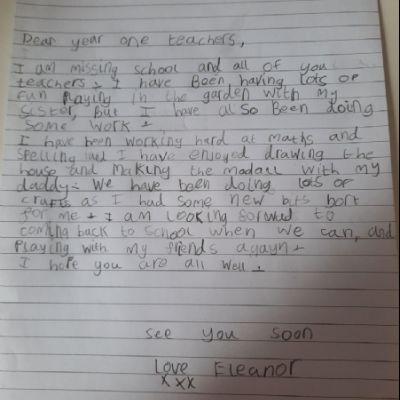 Dear year one teachers,
I am missing school and all of you
teachers. I have Been having lots of
fun Playing in the garden with my
sister, But I have also Been doing
some work.
I have been working hard at maths and
spelling and I have enjoyed drawing the
house and making the madall with my
daddy. We have been doing lots of
crafts as I had some new bits bort
for me. I am looking forwud to
coming back to school when we can, and
Playing with my friends agayn.
I hope you are all well.
see you soon
Love Eleanor
x xx